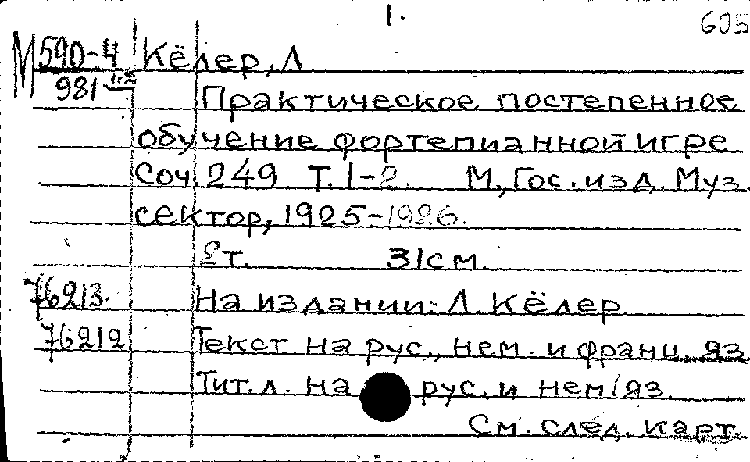 1. 695
М 590-4 Кёлер, Л
981 1-2
Практическое постепенное
обучение фортепианной игре
Соч. 249 Т. 1-2. М., Гос. изд. Муз.
сектор, 1925-1926.
2 т. 31 см.
76213. На издании: Л. Кёлер
76212 Текст на рус., нем. и франц. яз.
Тит. л. на рус. и нем. яз.
См. след. карт.